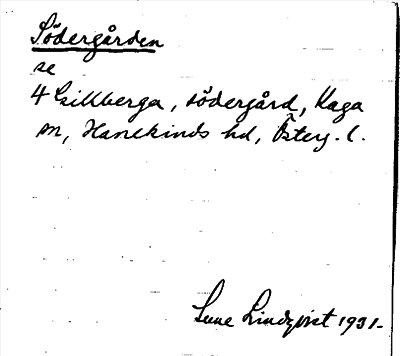 Södergården
se
4 Gillberga, södergård, Kaga
sn, Hanekinds hd, Österg. l.
Sune Lindqvist 1931.